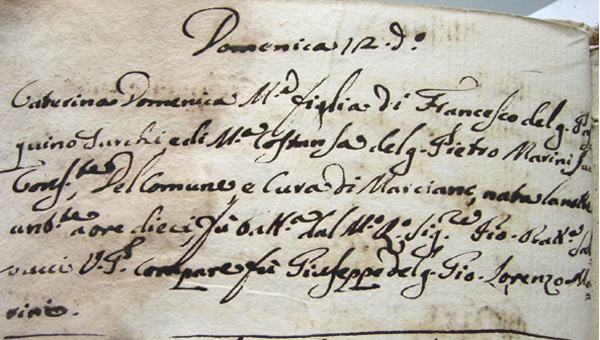 Domenica 12 d.º
Caterina Domenica M.ª figlia di Francesco del q.
quino Surchi, e di M.ª Costansa del q. Pietro Marini Sua
Cons.te, Del Comune, e Cura di Marciana, nata la notte
ant.te a ore dieci, fù batt.ª dal M.º R.º Sig.re Gio. Batt.ª
vucci V. Compare fù Giuseppe del q. Gio. Lorenzo Ma
rini.